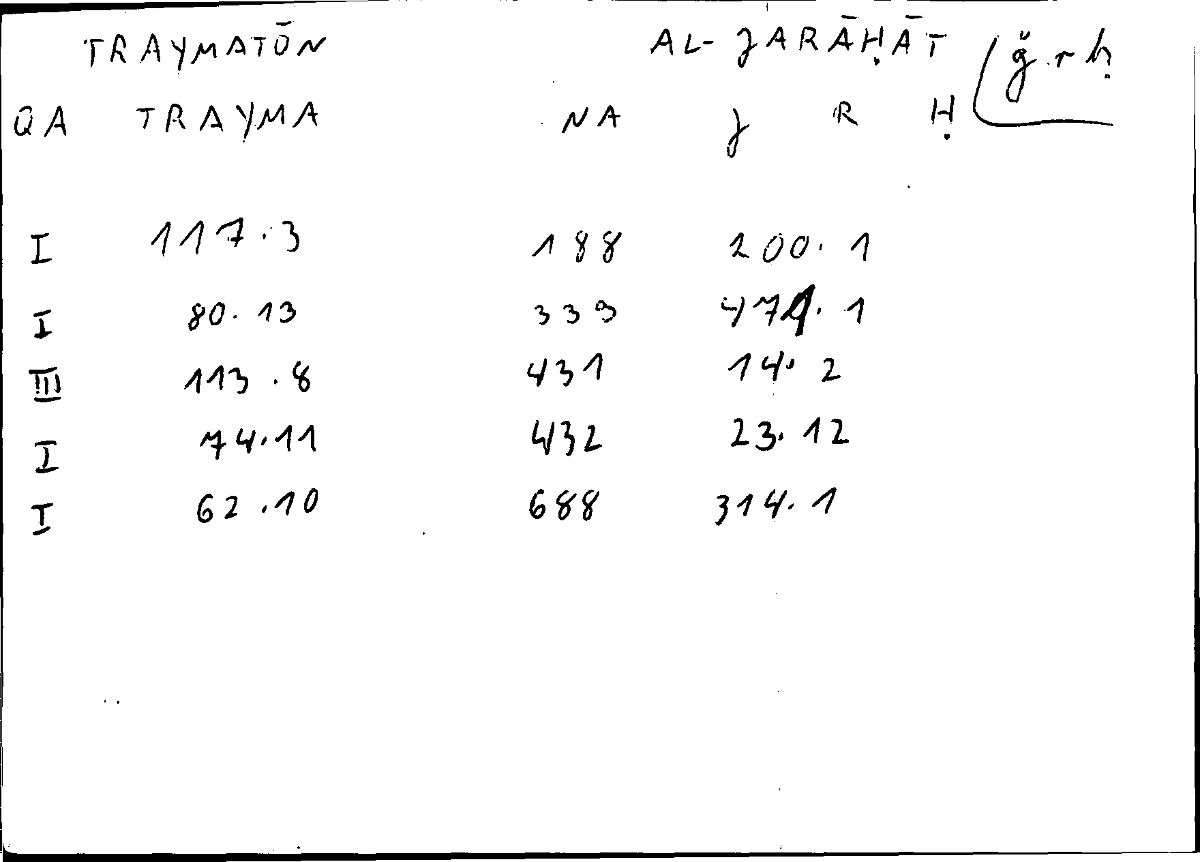 TRAYMATŌN AL-JARĀḤĀT ǧrḥ
QA TRAYMA NA J R Ḥ
I 117.3 188 200.1
I 80.13 339 471.1
III 113.8 431 14.2
I 74.11 432 23.12
I 62.10 688 314.1